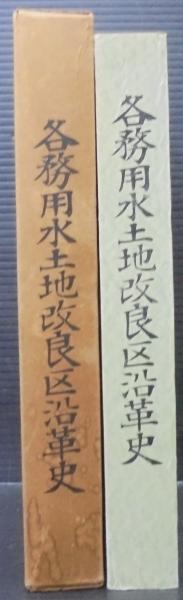 各務用水土地改良区沿革史
各務用水土地改良区沿革史